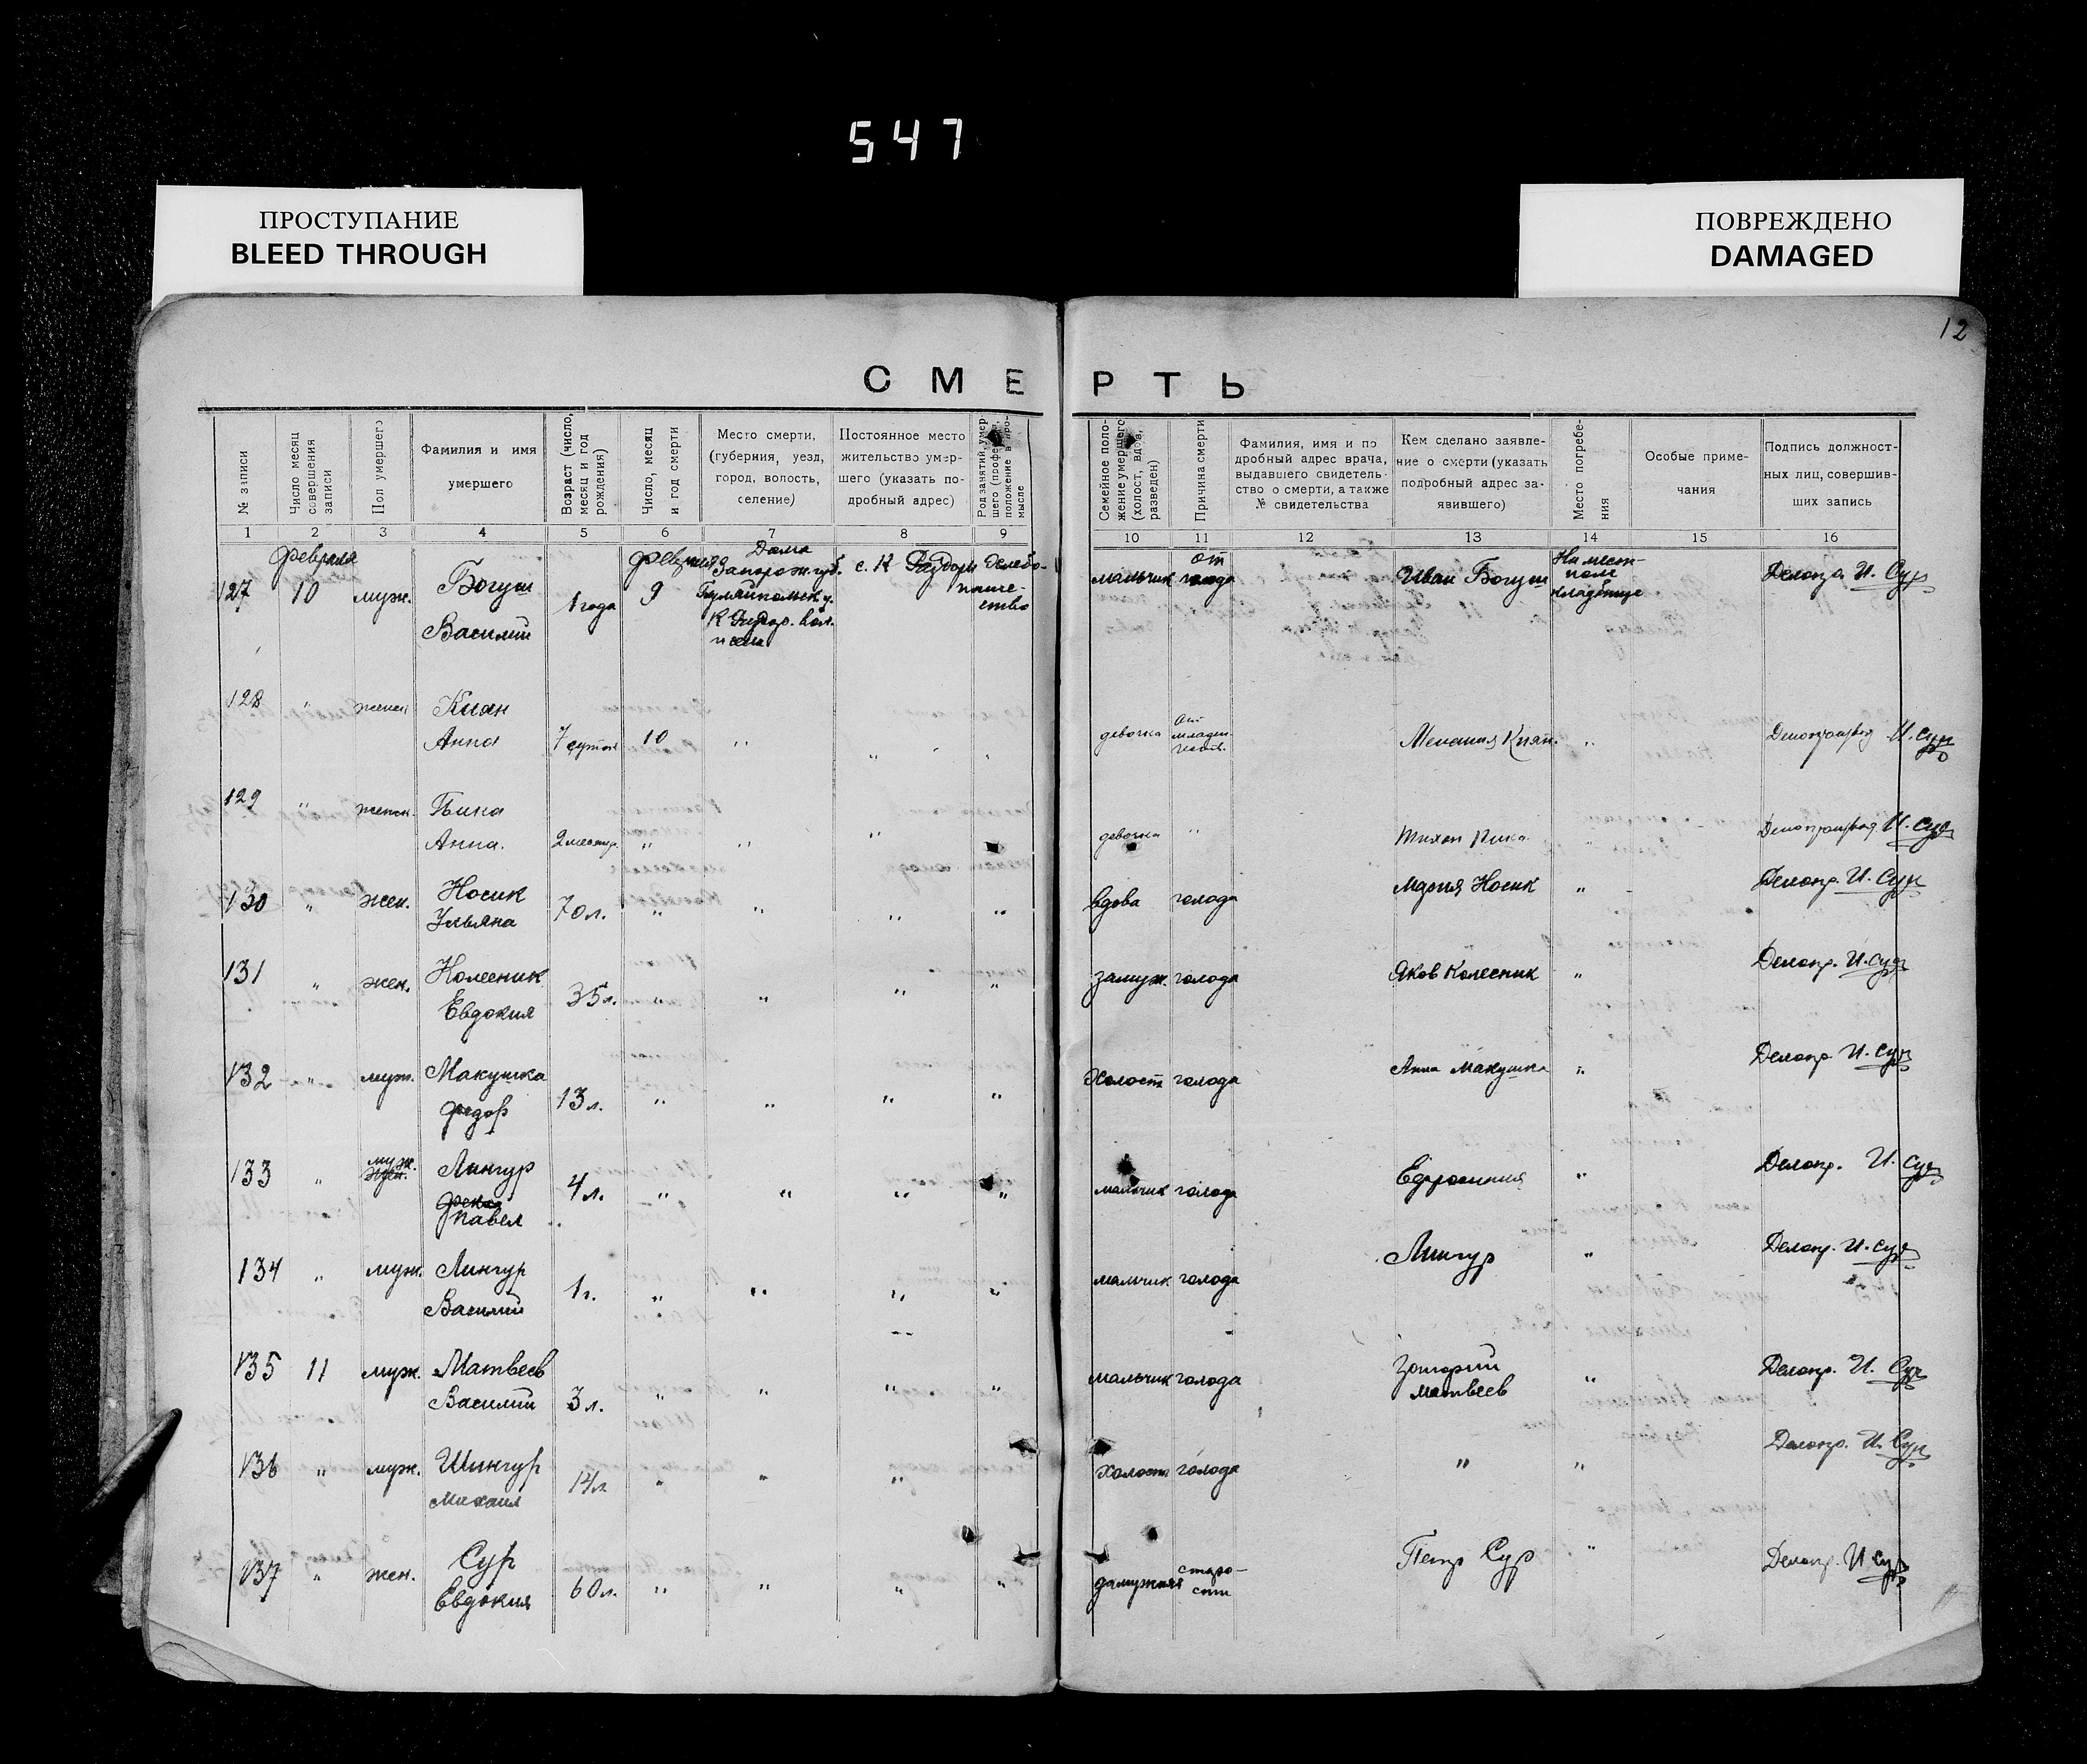 547
ПРОСТУПАНИЕ
BLEED THROUGH
ПОВРЕЖДЕНО
DAMAGED
12
СМЕРТЬ
№ записи
Число месяц совершения записи
Пол умершего
Фамилия и имя
умершего
Возраст (число, месяц и год рождения)
Число, месяц и год смерти
Место смерти,
(губерния, уезд,
город, волость,
селение)
Постоянное место
жительство умер-
шего (указать по-
дробный адрес)
Род занятий умер-
шего (професс.
положение в про-
мысле
Семейное поло-
жение умершего
(холост, вдов,
разведен)
Причина смерти
Фамилия, имя и по
дробный адрес врача,
выдавшего свидетель-
ство о смерти, а также
№ свидетельства
Кем сделано заявле-
ние о смерти (указать
подробный адрес за-
явившего)
Место погребе-
ния
Особые приме-
чания
Подпись должност-
ных лиц, совершив-
ших запись
1 2 3 4 5 6 7 8 9 10 11 12 13 14 15 16
127 февраля 10 муж. Богуш Василий 1 года февраля 9 Дома Запорож. губ. Гуляйпольск у. с. К Раздоры мальчик от голода Иван Богуш На мест- кладбище Делопр. И. Сур
128 " женск Киян Анна 7 суток 10 " " " девочка от младен- Мелания Киян. " И. Сур
129 " женск. Пика Анна. 2 месяца " " " девочка " Тихон Пика " И. Сур
130 " жен. Носик Ульяна 70 л. " " " " вдова голода Мария Носик " Делопр. И. Сур
131 " жен. Колесник Евдокия 35 л. " " " " замуж. голода Яков Колесник " Делопр. И. Сур
132 " муж. Макушка Федор 13 л. " " " " холост голода Анна Макушка " Делопр. И. Сур
133 " муж. жен. Лингур Павел 4 л. " " " " мальчик голода Ефросиния " Делопр. И. Сур
134 " муж. Лингур Василий 1 г. " " " " мальчик голода Лингур " Делопр. И. Сур
135 11 муж. Матвеев Василий 3 л. " " " " мальчик голода Матвеев " Делопр. И. Сур
136 " муж. Шингур Михаил 14 л " " " холост голода " " Делопр. И. Сур
137 " жен. Сур Евдокия 60 л. " " " " замужняя старо- сти Петр Сур " Делопр. И Сур